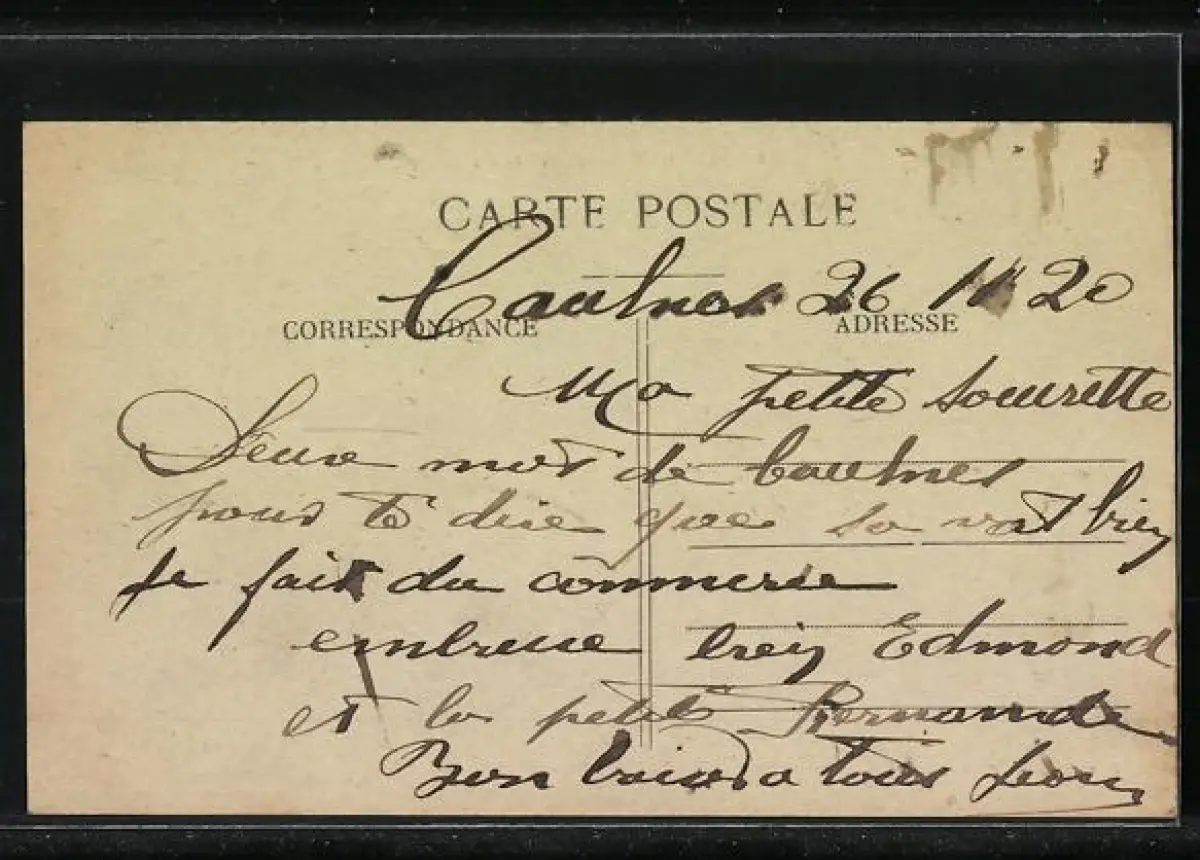 CARTE POSTALE
Caulnes 26 11 20
CORRESPONDANCE
ADRESSE
Ma petite sourette
Deux mot de Caulnes
pour te dire que sa vat bien
Je fait du commerce
embrasse bien Edmond
et la petite Fernande
Bon baiser a tous Leon